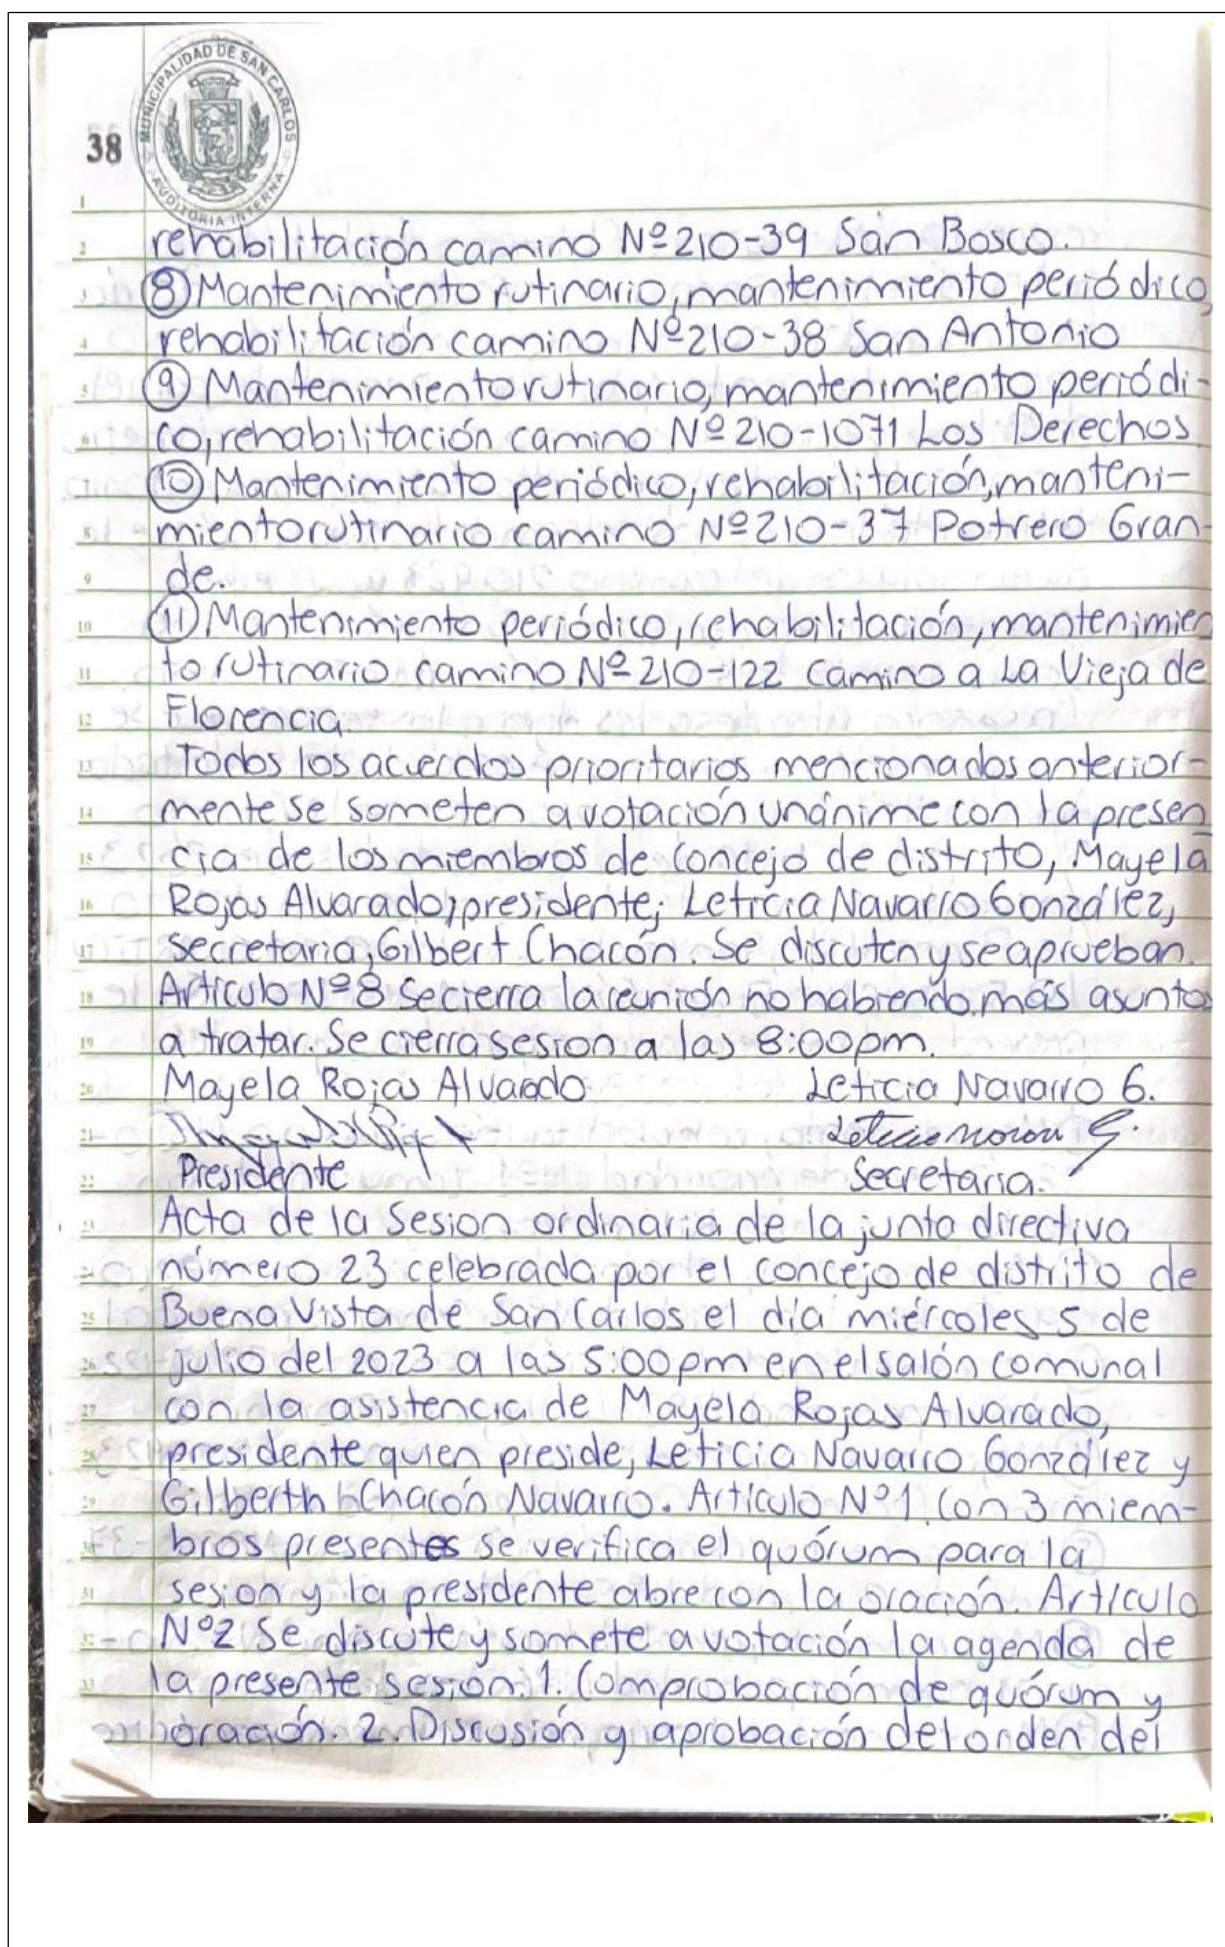 MUNICIPALIDAD DE SAN CARLOS
AUDITORIA INTERNA
38
1
2 rehabilitación camino Nº 210-39 San Bosco.
3 ⑧ Mantenimiento rutinario, mantenimiento periódico,
4 rehabilitación camino Nº 210-38 San Antonio
5 ⑨ Mantenimiento rutinario, mantenimiento periódi-
6 co, rehabilitación camino Nº 210-1071 Los Derechos
7 ⑩ Mantenimiento periódico, rehabilitación, manteni-
8 miento rutinario camino Nº 210-37 Potrero Gran-
9 de.
10 ⑪ Mantenimiento periódico, rehabilitación, mantenimien
11 to rutinario camino Nº 210-122 Camino a La Vieja de
12 Florencia.
13 Todos los acuerdos prioritarios mencionados anterior-
14 mente se someten a votación unánime con la presen
15 cia de los miembros de concejo de distrito, Mayela
16 Rojas Alvarado, presidente; Leticia Navarro González,
17 secretaria, Gilbert Chacón. Se discuten y se aprueban.
18 Artículo Nº 8 Se cierra la reunión no habiendo más asuntos
19 a tratar. Se cierra sesion a las 8:00pm.
20 Mayela Rojas Alvarado Leticia Navarro G.
21
22 Presidente Secretaria.
23 Acta de la Sesion ordinaria de la junta directiva
24 número 23 celebrada por el concejo de distrito de
25 Buena Vista de San Carlos el día miércoles 5 de
26 julio del 2023 a las 5:00pm en el salón comunal
27 con la asistencia de Mayela Rojas Alvarado,
28 presidente quien preside, Leticia Navarro González y
29 Gilberth Chacón Navarro. Artículo Nº1. Con 3 miem-
30 bros presentes se verifica el quórum para la
31 sesion y la presidente abre con la oración. Artículo
32 Nº2 Se discute y somete a votación la agenda de
33 la presente sesión. 1. Comprobación de quórum y
oración. 2. Discusión y aprobación del orden del